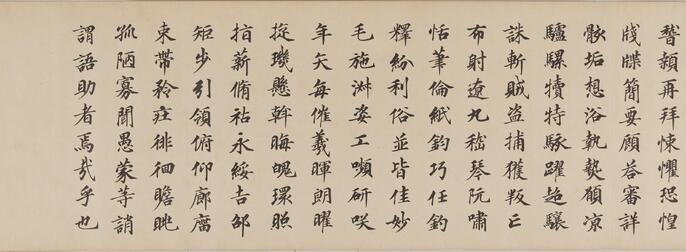 稽顙再拜悚懼恐惶
牋牒簡要顧荅審詳
骸垢想浴執熱願凉
驢騾犢特駭躍超驤
誅斬賊盜捕獲叛亡
布射遼九嵇琴阮嘯
恬筆倫紙鈞巧任釣
釋紛利俗並皆佳妙
毛施淑姿工嚬妍咲
年矢每催羲暉朗曜
旋璣懸斡晦魄環照
指薪脩祜永綏吉邵
矩步引領俯仰廊庿
束帶矜莊徘徊瞻眺
孤陋寡聞愚蒙等誚
謂語助者焉哉乎也